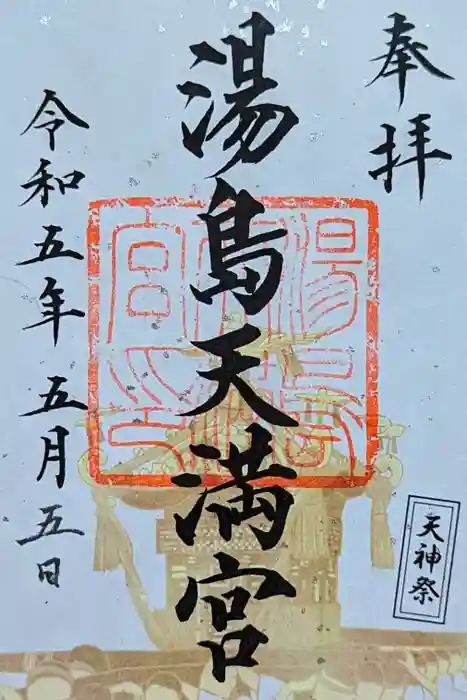 奉拝
湯島天満宮
令和五年五月五日
天神祭